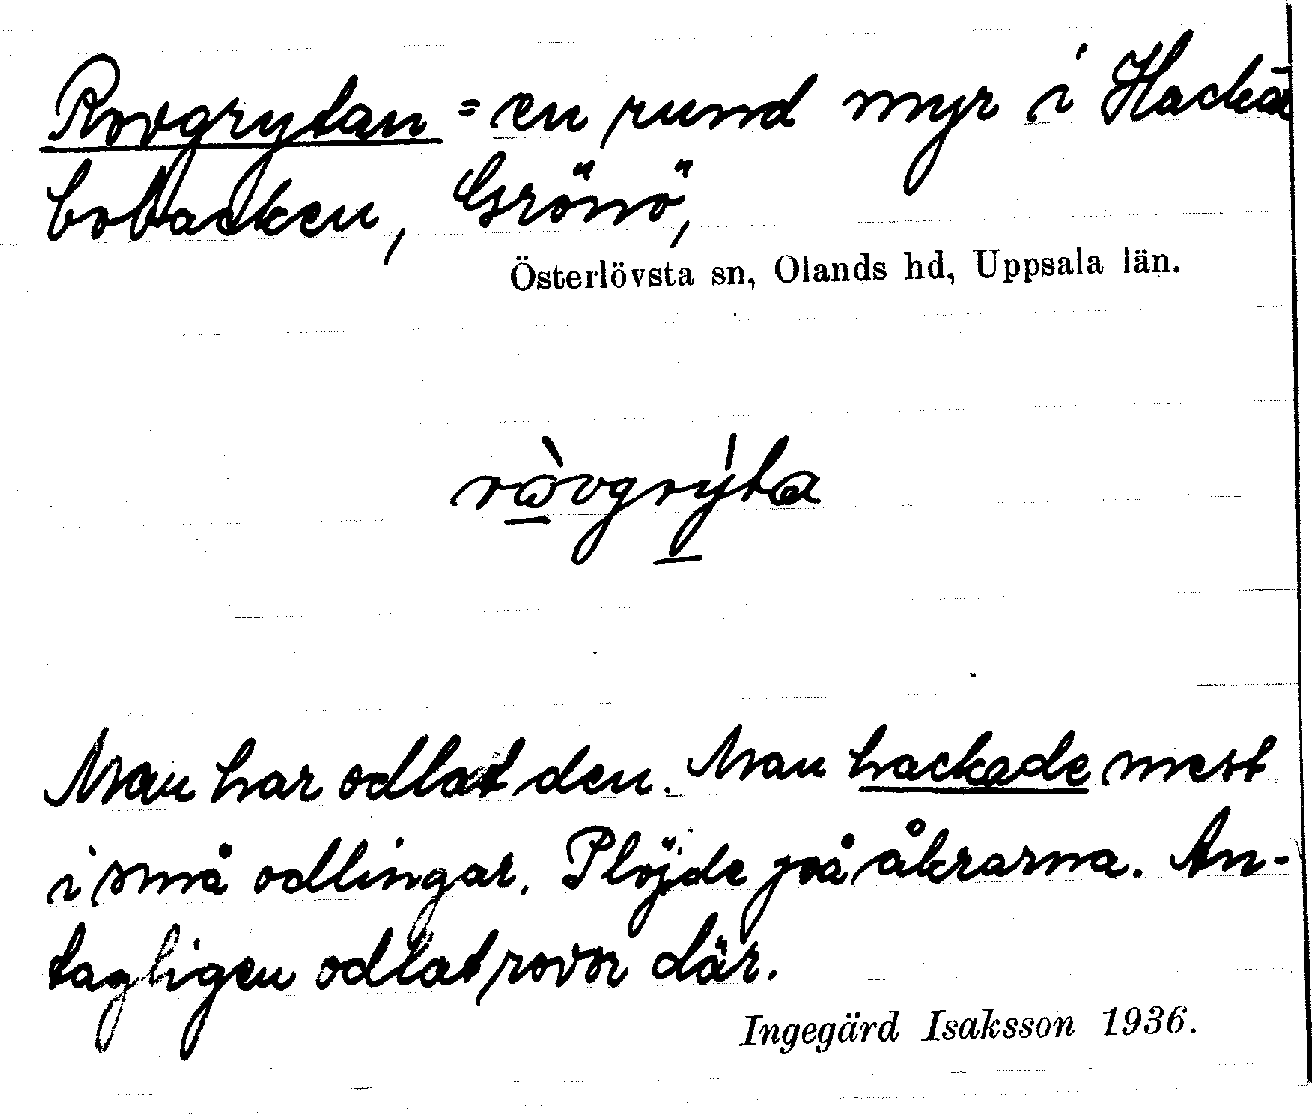 Rovgrytan = en rund myr i Hackä
bobacken, Grönö,
Österlövsta sn, Olands hd, Uppsala län.
rὼvgrỳta
Man har odlat den. Man hackade mest
i små odlingar. Plöjde på åkrarna. An-
tagligen odlat rovor där.
Ingegärd Isaksson 1936.